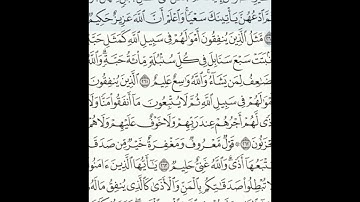 ٱدْعُهُنَّ يَأْتِينَكَ سَعْيًا ۚ وَٱعْلَمْ أَنَّ ٱللَّهَ عَزِيزٌ حَكِيمٌ
مَّثَلُ ٱلَّذِينَ يُنفِقُونَ أَمْوَٰلَهُمْ فِى سَبِيلِ ٱللَّهِ كَمَثَلِ حَبَّ
نۢبَتَتْ سَبْعَ سَنَابِلَ فِى كُلِّ سُنۢبُلَةٍ مِّا۟ئَةُ حَبَّةٍ ۗ وَٱللَّهُ
ضَٰعِفُ لِمَن يَشَآءُ ۗ وَٱللَّهُ وَٰسِعٌ عَلِيمٌ ٢٦١ ٱلَّذِينَ يُنفِقُونَ
مْوَٰلَهُمْ فِى سَبِيلِ ٱللَّهِ ثُمَّ لَا يُتْبِعُونَ مَآ أَنفَقُوا۟ مَنًّا وَلَآ
ذًى ۙ لَّهُمْ أَجْرُهُمْ عِندَ رَبِّهِمْ وَلَا خَوْفٌ عَلَيْهِمْ وَلَا هُ
حْزَنُونَ ٢٦٢ قَوْلٌ مَّعْرُوفٌ وَمَغْفِرَةٌ خَيْرٌ مِّن صَدَقَ
تْبَعُهَآ أَذًى ۗ وَٱللَّهُ غَنِىٌّ حَلِيمٌ ٢٦٣ يَٰٓأَيُّهَا ٱلَّذِينَ ءَامَنُوا۟
ا تُبْطِلُوا۟ صَدَقَٰتِكُم بِٱلْمَنِّ وَٱلْأَذَىٰ كَٱلَّذِى يُنفِقُ مَالَهُ